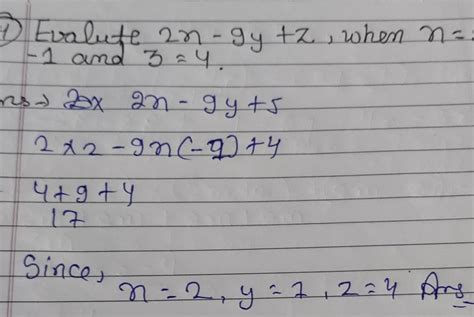 1) Evalute 2x - 9y + z, when x =
-1 and 3 = 4.
ns → 2x - 9y + 5
2 x 2 - 9x(-9) + 4
4 + 9 + 4
17
Since,
x = 2, y = 1, z = 4 Ans